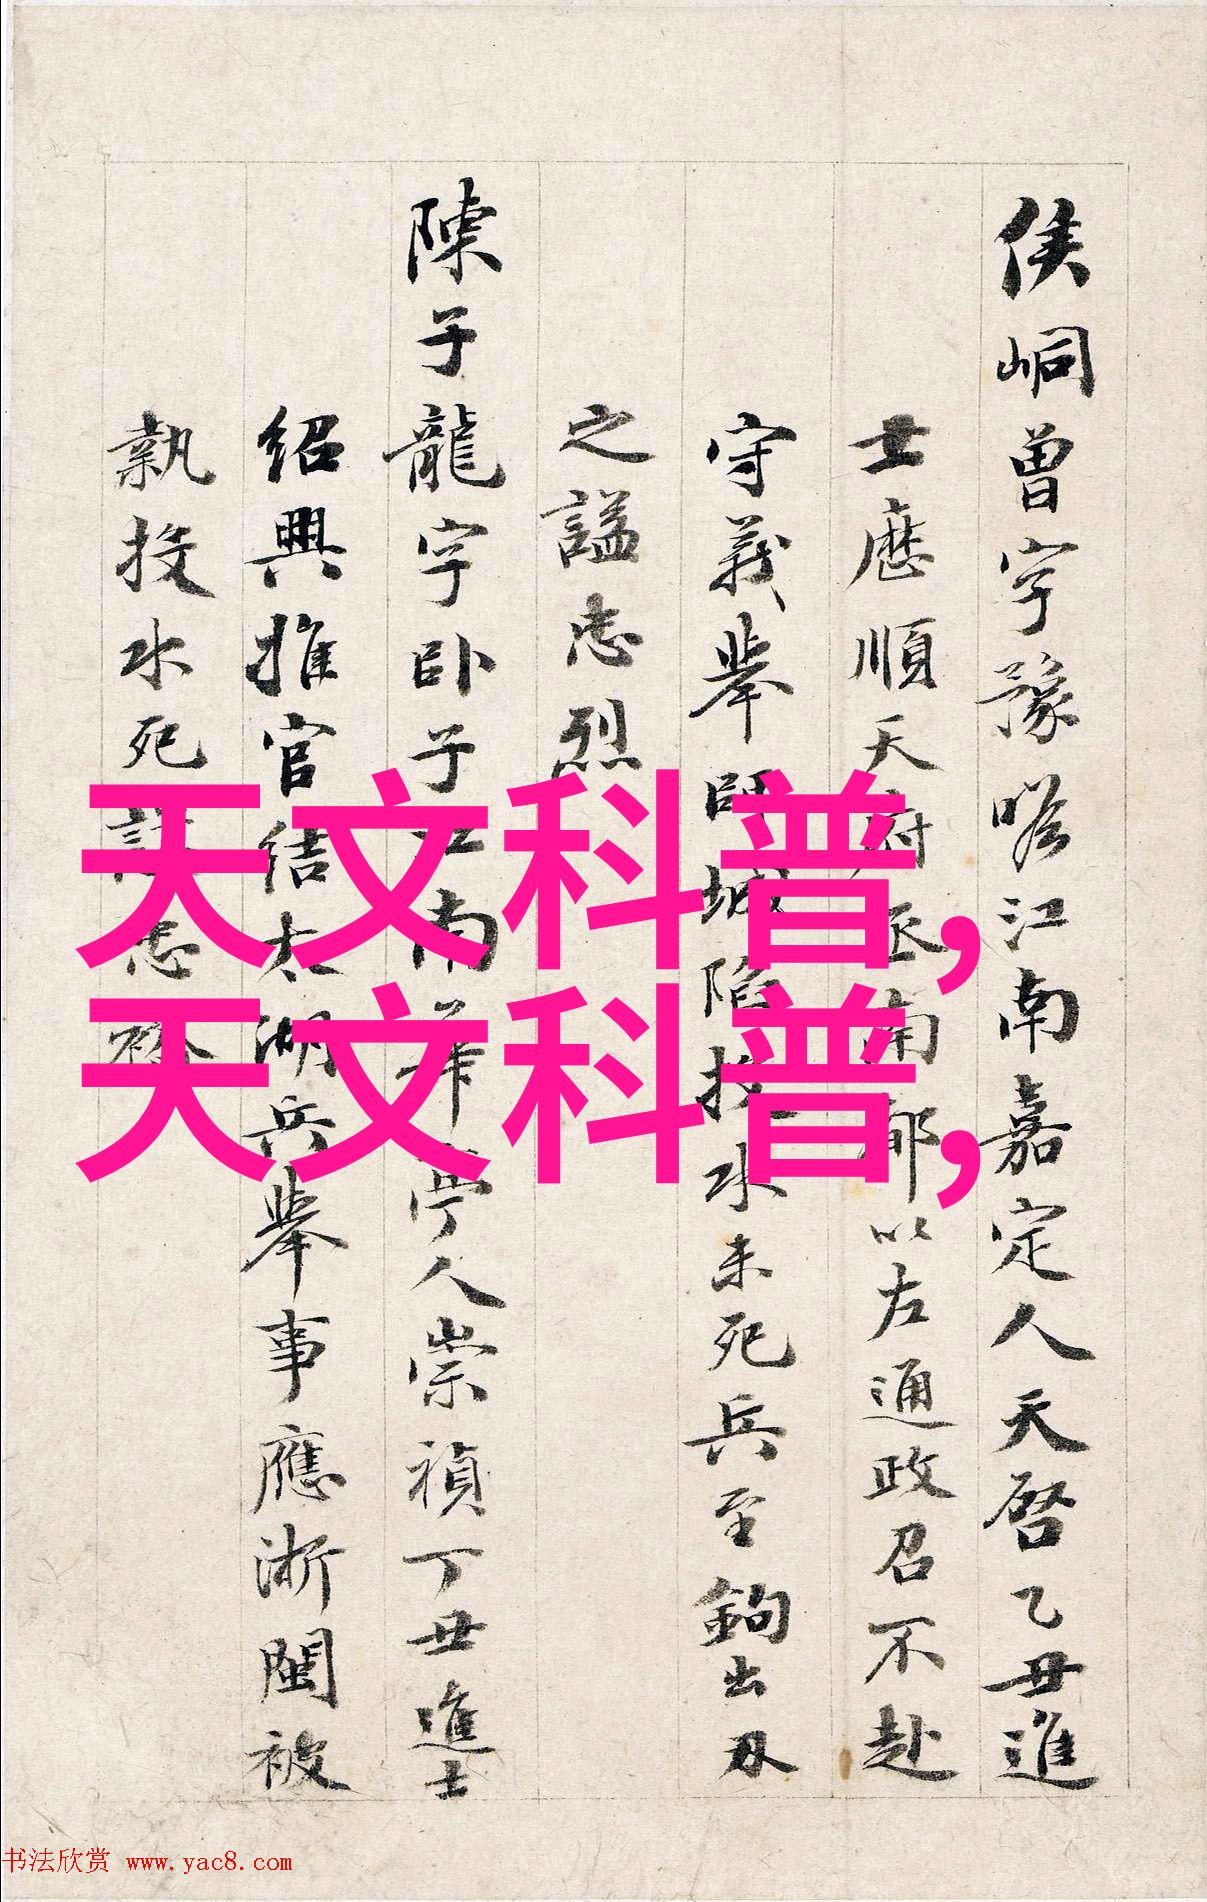 侯峒曾字豫瞻江南嘉定人天啓乙丑進
士歷順天府丞南都以左通政召不赴
守義舉師城陷投水未死兵至鉤出刃
之諡忠烈
陳子龍字卧子江南華亭人崇禎丁丑進士
紹興推官結太湖兵舉事應浙閩被
執投水死諡忠裕
天文科普,
天文科普,
书法欣赏 www.yac8.com